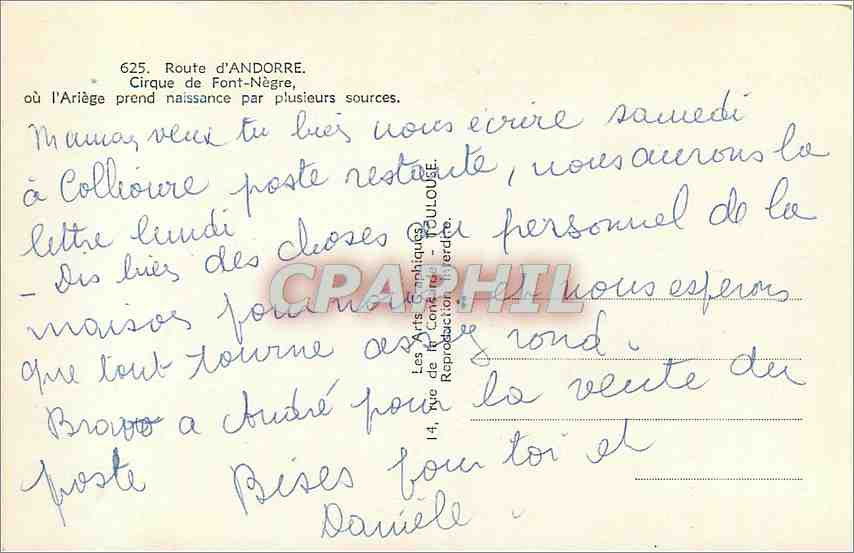 625. Route d'ANDORRE.
Cirque de Font-Nègre,
où l'Ariège prend naissance par plusieurs sources.
Maman veux tu bien nous écrire samedi
à Collioure poste restante, nous aurons la
lettre lundi
- Dis bien des choses au personnel de la
maison pour nous, et nous esperons
que tout tourne assez rond.
Bravo a André pour la vente du
poste Bises pour toi et
Danièle.
Les Arts Graphiques
14, rue de la Concorde - TOULOUSE.
Reproduction Interdite.
CPARPHIL